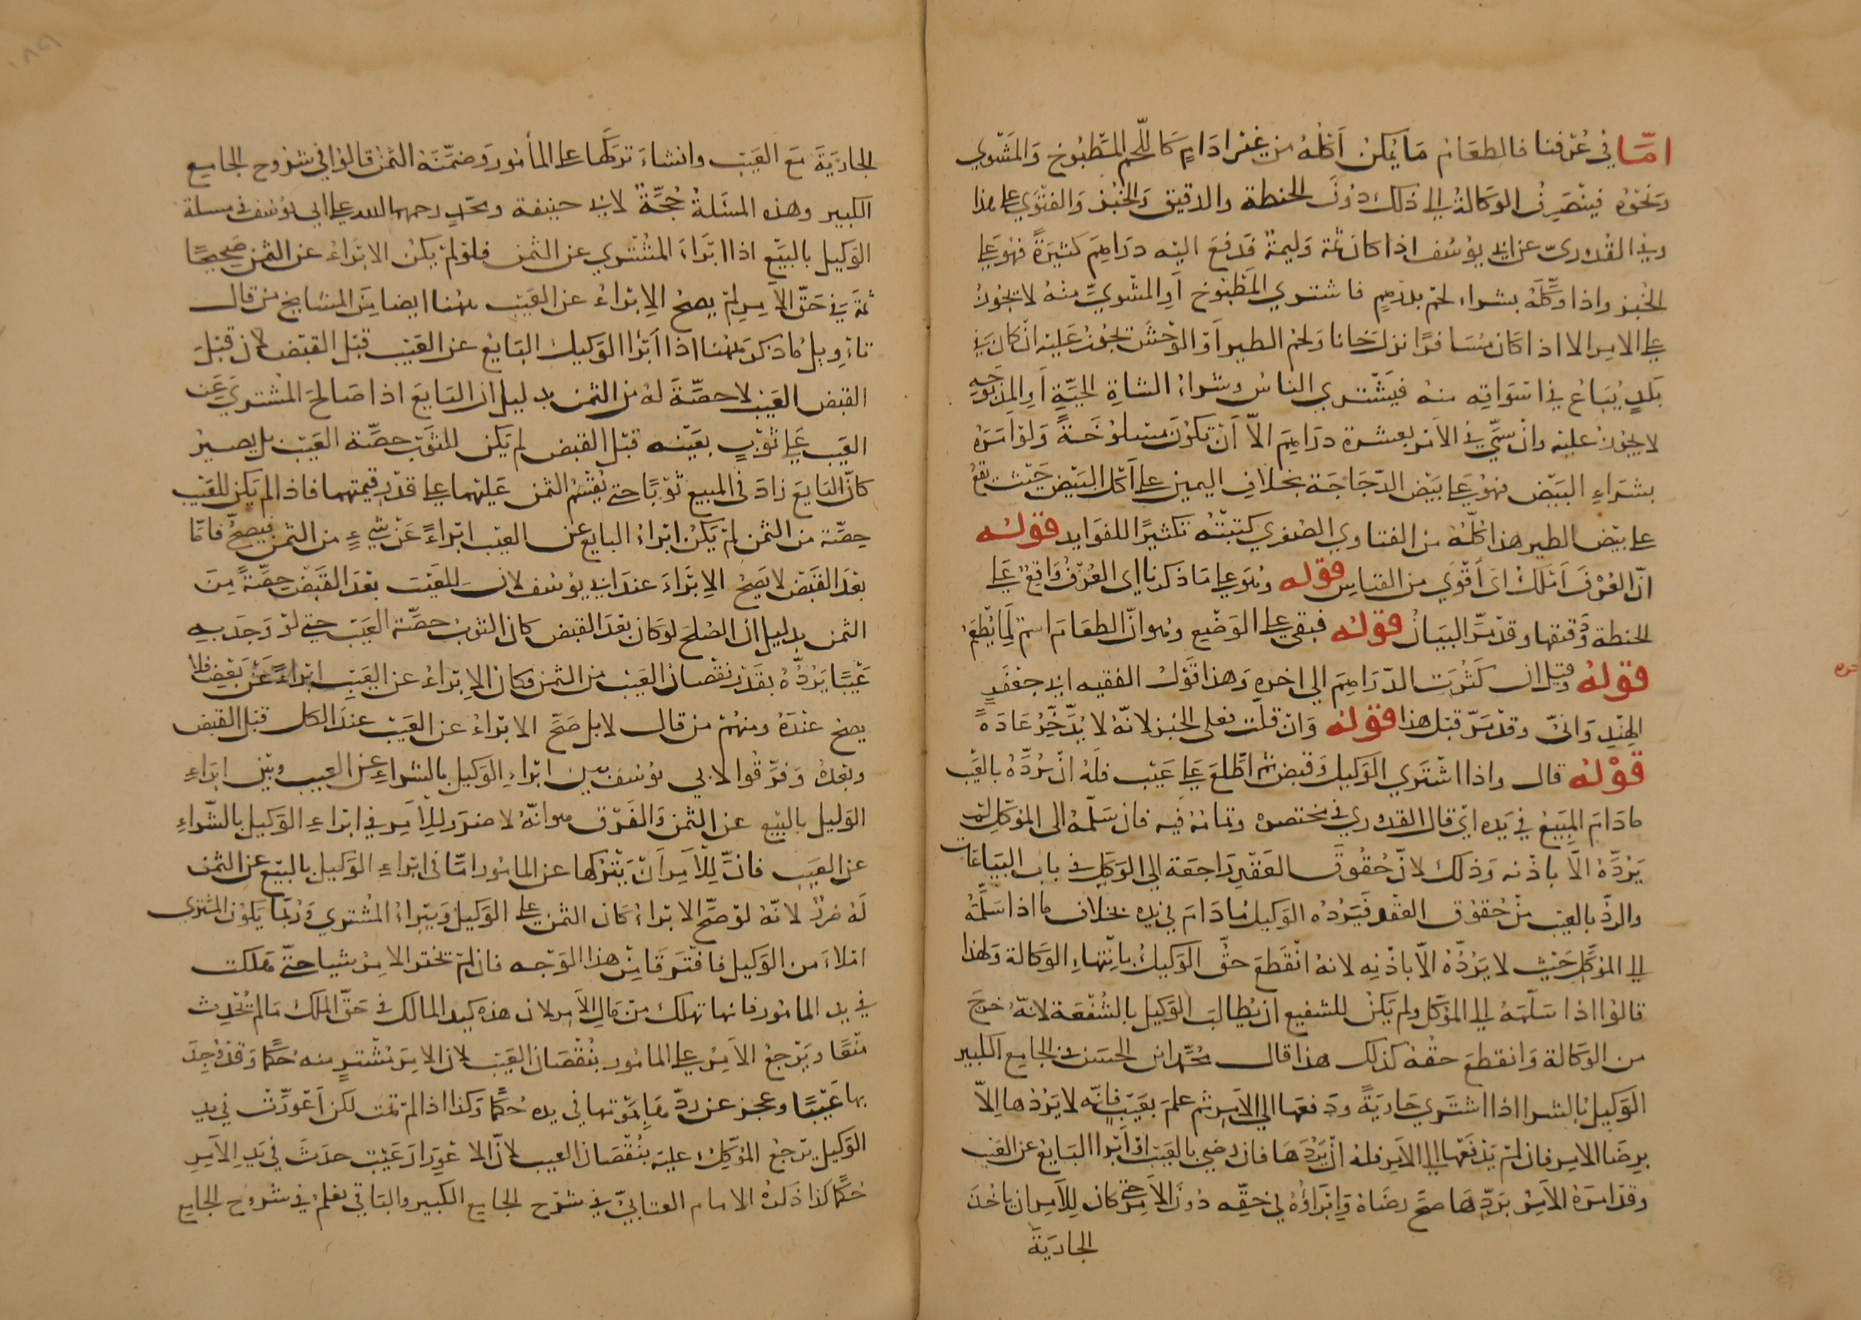 امّا في عُرفنا فالطعَام مَا يمكن اَكلُهُ من غير ادَامٍ كَاللّحم المَطبُوخ وَالمَشوي
وَنحوُه فينصَرِفُ الوَكالةُ الى ذلك دُونَ الحنطة والدقيق وَالخبُز وَالفَتوَى على هذا
وفي القُدوري عن ابي يوسُف اذا كانَ ثمة وَليمة فَدفعَ اليه درَاهِمَ كثيَرةً فهُوَ على
الخُبز واذا وَكّلَهُ بشراء لحم بدرهمٍ فاشتري المَطبُوخ اَو المشويَّ منه لا يجوزُ
على الامِر الا اذا كَان مُسَافرًا نزلَ خانا وَلحم الطير اَو الوَحشَ لا يجُوز عَليه ان كان في
بَلدٍ يُبَاعُ في اَسوَاقِه منه فيَشتري الناسُ وشراءُ الشاةِ الحيَّةِ اَو المذبُوحَةِ
لا يجوزُ عليه وان سمّي في الاَمر بعشرة درَاهِمَ الاّ اَن تكوُن مسلوُخَةً وَلو اَمَرَهُ
بشرَاءِ البَيض فهوُ على بَيض الدّجَاجَة بخلافِ اليمين على اَكل البَيض حَيثُ يقعُ
على بيض الطير هذا كلُّهُ من الفتاوي الصُغري كتبتُه تكثيرًا للفوايد قولُه
انّ العُرفَ اَملَكُ اىَ اَقوَي من القياس قوله وهُوَ على مَا ذكرنا اى العُرفُ وَاقِعٌ على
الحنطة وَدقيقها وقد مرَّ البيَان قوله فبقي على الوَضع وهو انّ الطعَامَ اسمٌ لما يُطعَمُ
قوله وقيل ان كَثُرَت الدّرَاهِمَ الى اخره وَهذا قَولُ الفقيه ابي جَعفَرٍ
الهندِوَانيّ وقد مَرّ قبل هذا قوله وَان قلّت فعلى الخبز لانّهُ لا يُدّخَرُ عَادَةً
قوله قال واذا اشتَري الوَكيل وَقبض ثم اطّلعَ عَلى عَيب فلَهُ انّ يرُدَّهُ بالعَيب
ما دَامَ المبيَع في يَده ايّ قال القدوري في مختصره وتمامُهُ فيه فان سَلّمَهُ الى المُوَكِّل لم
يَرُدَّهُ الاّ باذنه وَذلكَ لانّ حُقوقَ العَقدِ رَاجعَة الى الوَكيلِ في باب البيَاعَات
والردُّ بالعيب من حُقوُق العقد فَيرُدُه الوَكيلُ مَا دَامَ في يَده بخلاف ما اذا سَلَّمَهُ
الى الموَكِّل حَيث لا يَرُدُّهُ الاّ باذنِه لانهُ انقَطعَ حقُّ الوَكيلُ بانتهاءِ الوَكالة وَلهذا
قالوُا اذا سَلّمَهُ الى المؤكل ولم يَكن للشفيع اَن يُطالبَ الوَكيل بالشُفعَة لانّهُ خرجَ
من الوَكالة وَانقطعَ حقُه كذلك هذا قال محُمّد ابن الحسَن في الجامع الكبير
الوَكيلُ بالشرا اذا اشتَري جَاريَةً ودَفعَها الى الاَمِر ثم علمَ بعَيبٍ فانّه لا يَرُدُها الاّ
برِضَا الامِر فان لم يَدفعَها الى الاَمِر فلهُ انّ يَرُدَهَا فان رضيَ بالعَيب اَو اَبرا البَايعُ عن العَيب
وقد امَرَهُ الاَمِرُ برَدّهَا صحّ رضَاهُ وَابرَاؤُهُ في حقّه دُونَ الاَمِر حتى كان لِلاَمِر ان يَاخُذَ
الجاريَةَ
الجاريَةَ مَعَ العَيب وان شاءَ تركَهَا على المأمُور وَضمَّنَهُ الثمن قالوُا في شرُوح الجامع
الكبير وهذه المسَلةُ حُجَّةٌ لابي حنيفة ومحّمدٍ رحمهما الله على ابي يوُسف في مسلة
الوَكيل بالبَيعِ اذا اَبَراءَ المُشتري عن الثمن فلو لم يكن الابرَاءُ عن الثمن صَحيحًا
ثمةَ في حَقّ الاَمِر لم يصحُ الاِبرَاءُ عن العَيب ههُنا ايضا مِنَ المشايخ من قال
تاوِيلُ مَا ذكرَ ههُنا اذا اَبرَا الوَكيلُ البَايعَ عن العَيب قبَل القبَض لانّ قبَلَ
القبَض العَيبُ لا حصّةَ لهُ من الثمن بدليل ان البَايعَ اذا صَالحَ المشتريَ عَن
العَيب عَلى ثوبٍ بعَينه قبل القبض لم يَكن للثوَب حصِّة العَيب بل يصيرُ
كانّ البَايعَ زادَ في المبيع ثوبًا حتى يُقسَمُ الثمن عَليهما على قدر قيمتهما فاذا لم يَكن للعَيب
حِصّة من الثمن لم يَكُن ابرَاءُ البايع عن العيب ابرَاءً عَن شيءٍ من الثمن فيَصحُّ فامّا
بعدَ القَبض لا يَصحُ الاِبرَاءَ عندَ ابي يوُسف لانَ للعَيب بعدَ القَبض حِصَّةً مِنَ
الثمن بدليل ان الصُلحَ لو كانَ بعَدَ القبض كان الثوبُ حصّة العَيب حتى لو وَجدَ بهِ
عَيبًا يَرُدُّهُ بقَدرِ نقصَان العَيب من الثمن فكانَ الاِبرَاءُ عن العَيبِ ابرَاءً عَن بَعضِه فلا
يصحُ عندَهُ ومنهُم من قال لا بل صَحَّ الابرَاءُ عن العَيب عندَ الكل قبَل القبض
وبَعدَهُ وَفرّقوُا لابي يوُسفَ بين ابرَاءِ الوَكيل بالشراءِ عن العيب وبَين ابرَاءِ
الوَكيل بالبَيع عن الثمن وَالفَرق هو انّهُ لا ضرَرَ للاَمِر في ابرَاءِ الوَكيل بالشّراءِ
عن العيَب فانّ لِلاَمِر اَن يَتركها عن المامُور امّا في ابرَاءِ الوَكيل بالبَيع عن الثمن
لَهُ ضرَرٌ لانّهُ لو صحَّ الابرَاءُ كان الثمن على الوَكيل وَيبرَاءُ المُشتري وَرُبّمَا يَكوُن المشتري
امَلاءَ من الوَكيل فافترَقا مِن هذا الوَجه فان لم يختر الامِرُ شيا حتّى هَلكت
في يد المامُور فانها تهلك من مَالِ الاَمِر لان هذه كيد المالك في حَقّ الملك مَا لم تُحدِث
منعًا ويَرجعُ الاَمِرُ على المامُور بنُقصَان العَيب لان الامِرَ مُشترٍ منه حُكمًا وَقد وُجِدَ
بها عَيبًا وعجزَ عن ردّهَا بمَوتها في يده حُكمًا وَكذا اذا لم تمت لكن اَعوَرّت في يدِ
الوَكيل يرَجعُ المُوَكِّل عليه بنُقصَان العيب لانّ الاعوِرَارَ عَيب حدَثَ في يَدِ الاَمِرِ
حُكمًا كذا ذَكرهُ الامام العتابيّ في شرَح الجامع الكبير والبَاقي يعُلَمُ في شروُح الجامع